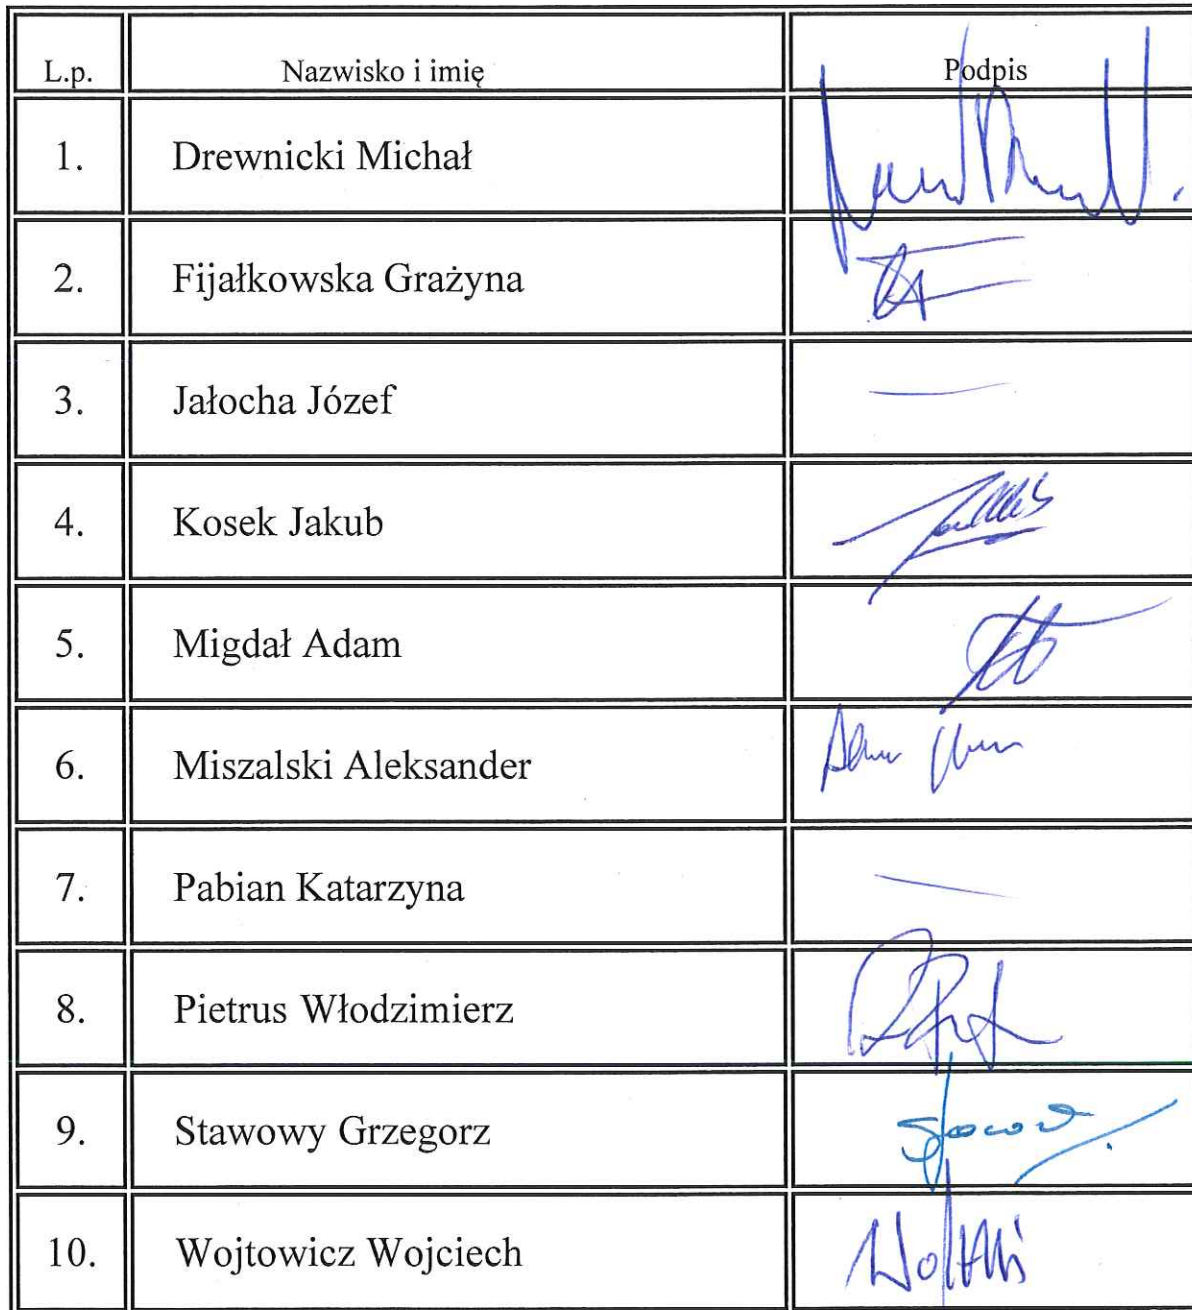 L.p. Nazwisko i imię Podpis
1. Drewnicki Michał
2. Fijałkowska Grażyna
3. Jałocha Józef —
4. Kosek Jakub
5. Migdał Adam
6. Miszalski Aleksander
7. Pabian Katarzyna —
8. Pietrus Włodzimierz
9. Stawowy Grzegorz
10. Wojtowicz Wojciech